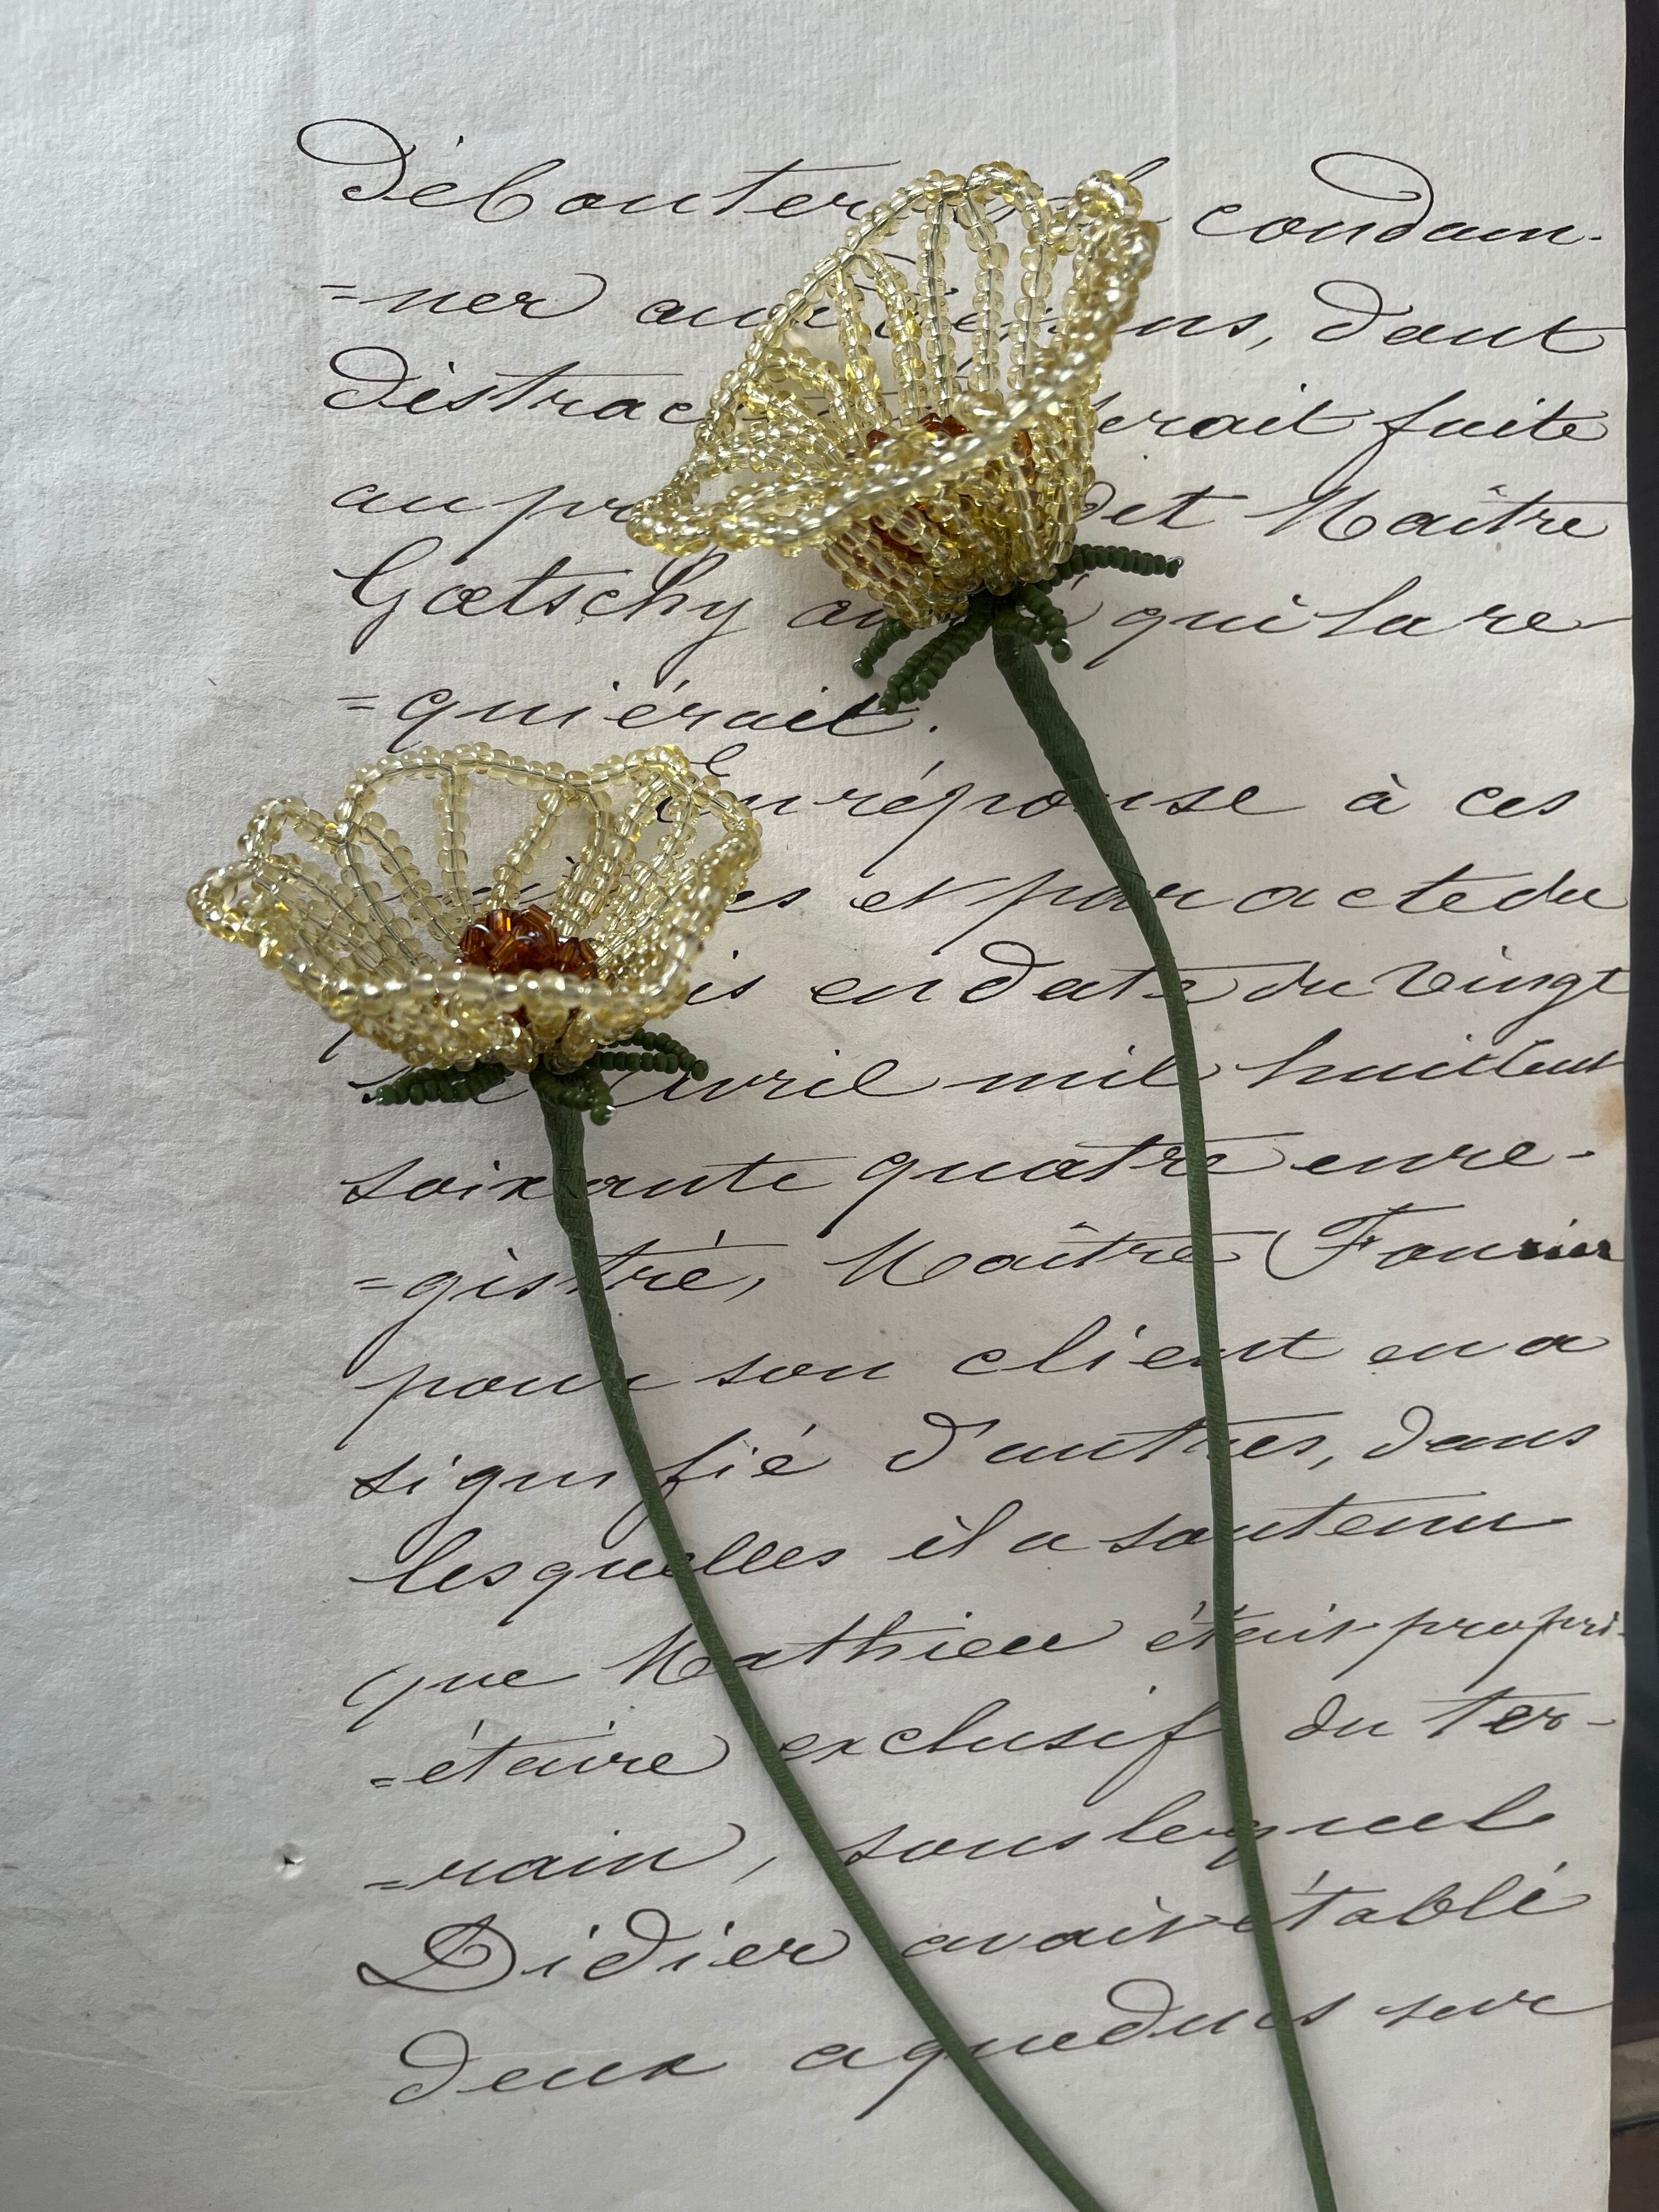 débouter condam-
=ner aux dépens, dont
distrac serait faite
au pr dit Maître
Gœtschy qui la re
=quiérait.
En réponse à ces
et par acte du
en date du vingt
avril mil huit cent
soixante quatre enre-
=gistré, Maître Fournier
pour son client en a
signifié d'autres, dans
lesquelles il a soutenu
que Mathieu était propri-
=étaire exclusif du ter-
=rain, sous lequel
Didier avait établi
deux aqueducs sur